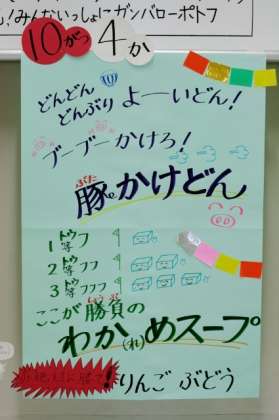 ん!みんないっしょにガンバローポトフ
10がつ4か
どんどん
どんぶり よーいどん!
ブーブーかけろ!
ぶた
豚かけどん
1トウフ
等
2トウフフ
等
3トウフフフ
等
ここが勝負の
しょうぶ
わか(れ)めスープ
りんご ぶどう